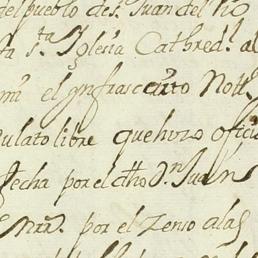 del pueblo de S. Juan del Rº
sta Sta Yglesia Cathredl al
mi el ynfrascrito Nottº
mulato libre que hizo oficio
fecha por el dho Dn Juan
por el zenso a las